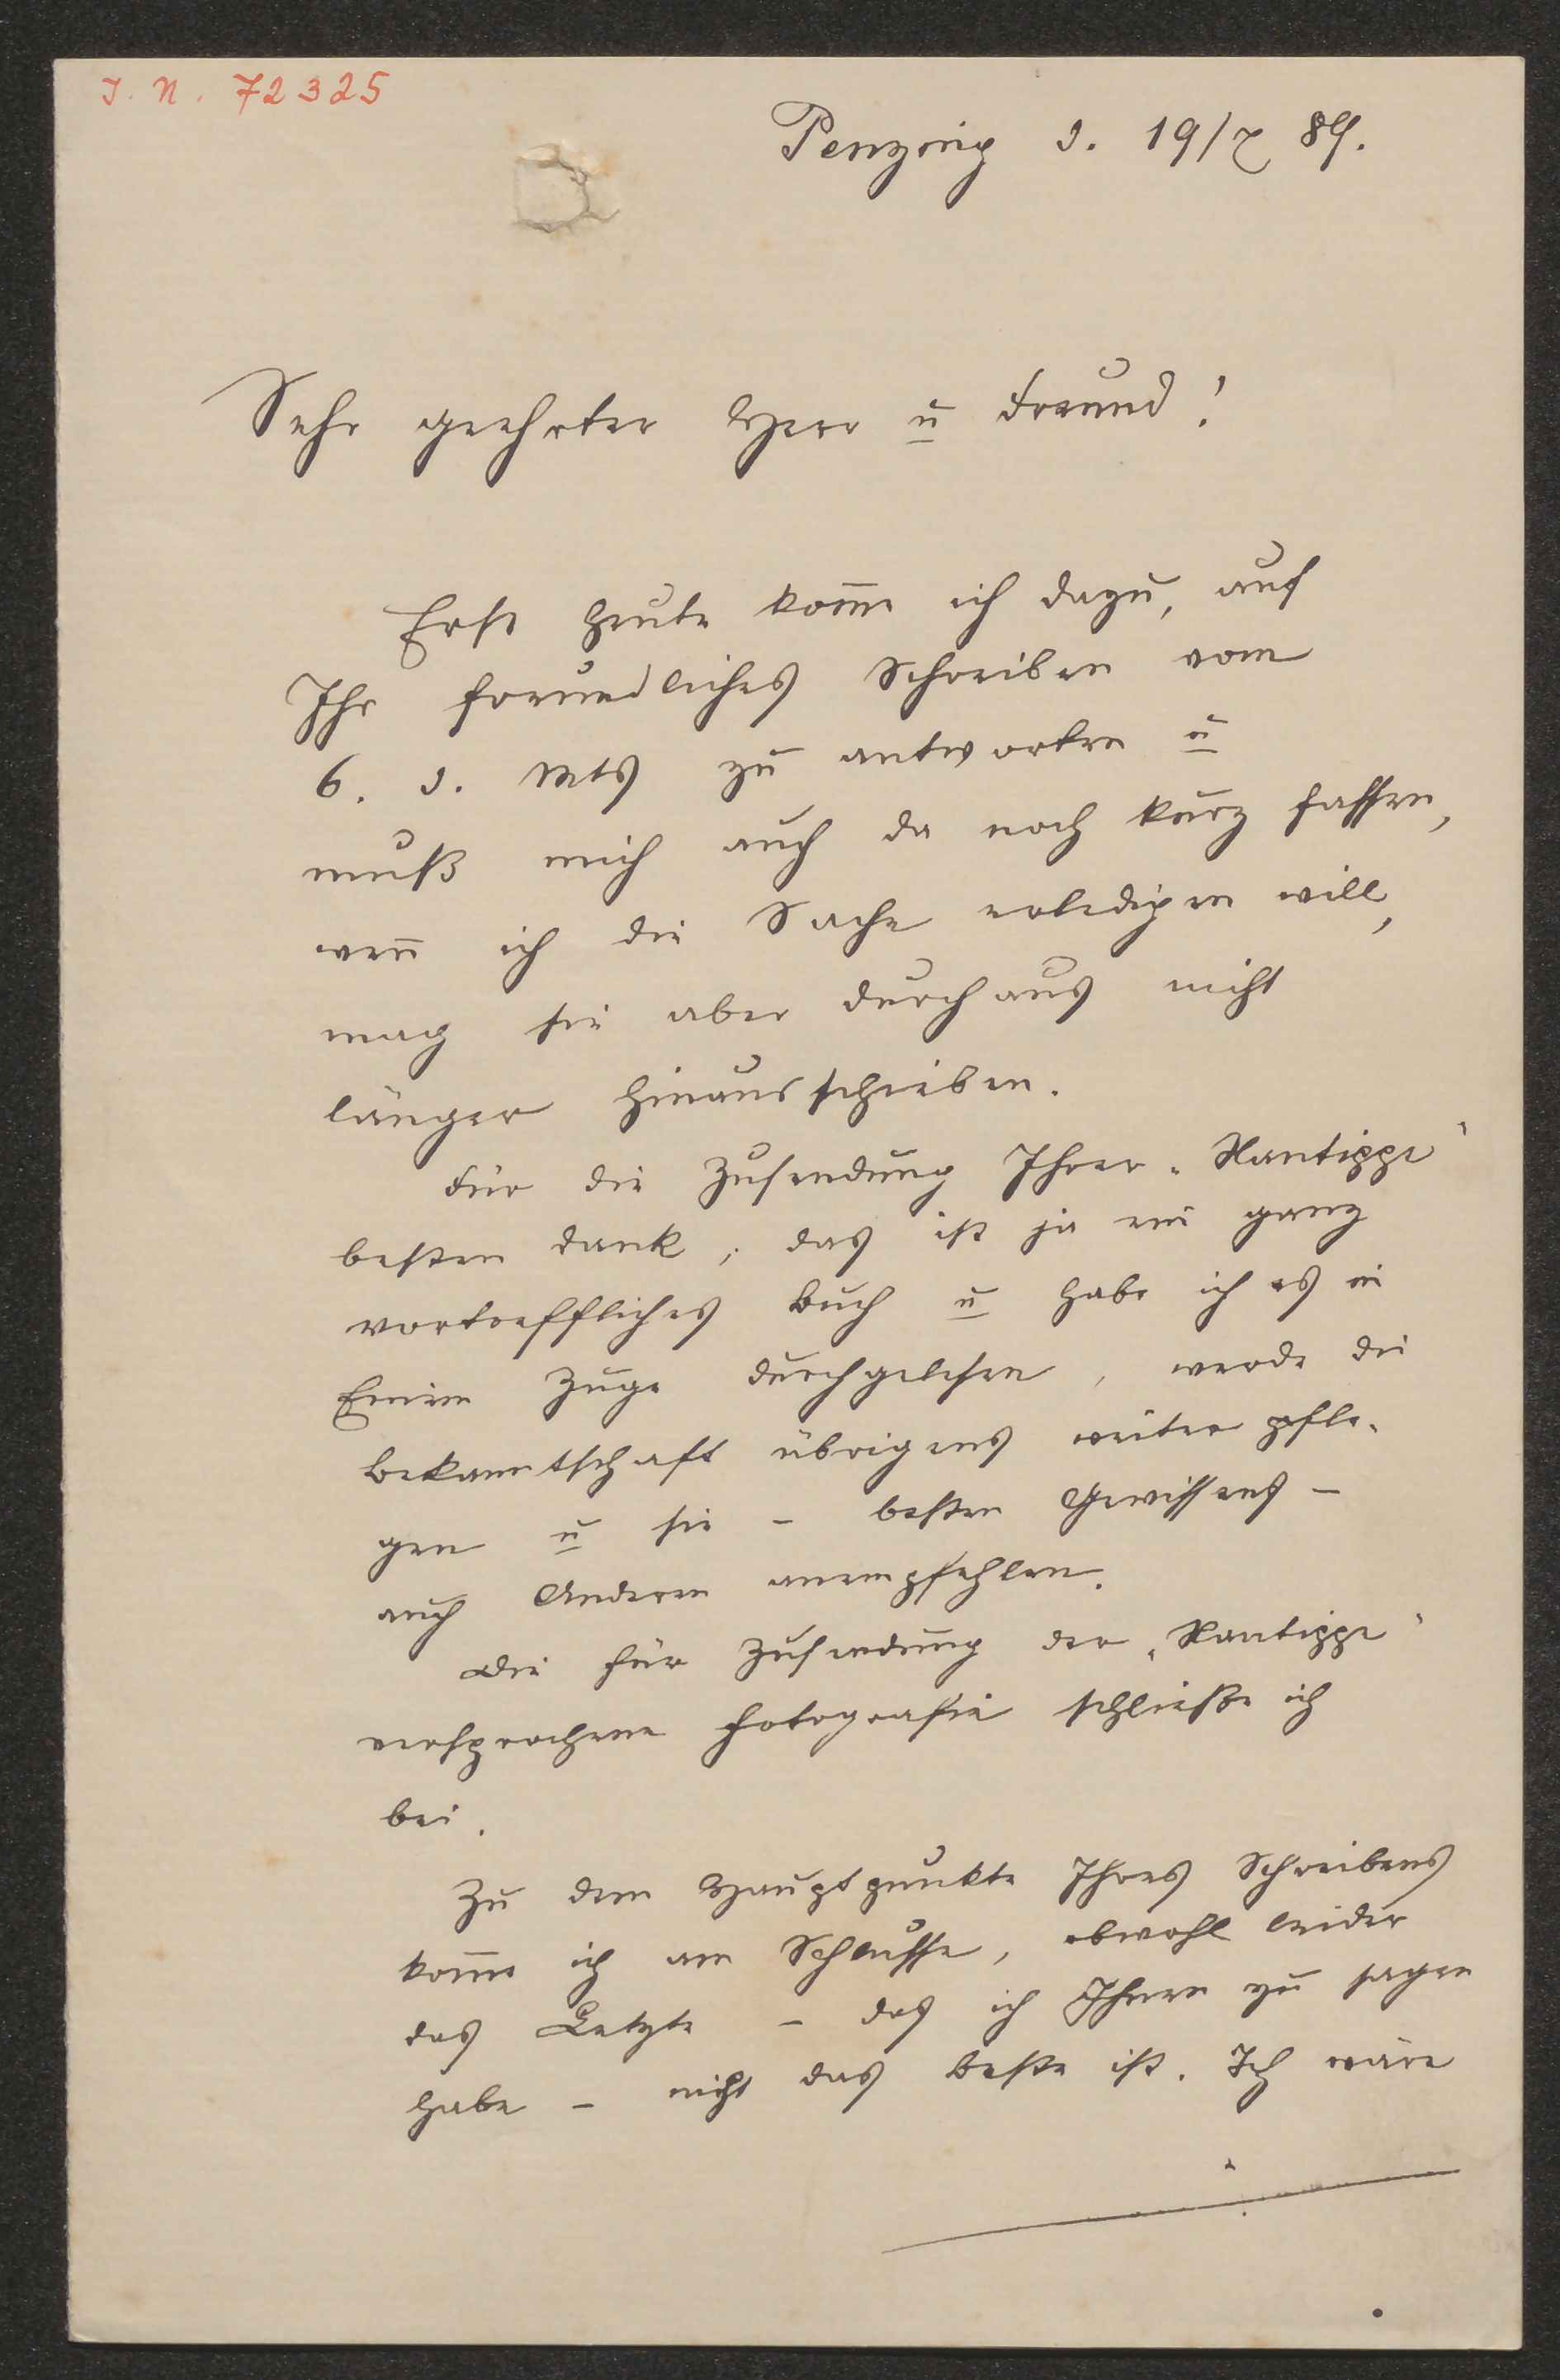 I. N. 72325
Penzing d. 19/7 84.
Sehr geehrter Herr u Freund!
Erst heute kom̅e ich dazu, auf
Ihr freundliches Schreiben vom
6. d. Mts zu antworten u
muß mich auch da noch kurz fassen,
wen̅ ich die Sache erledigen will,
mag sie aber durchaus nicht
länger hinausschieben.
Für die Zusendung Ihrer „Xantippe“
besten Dank; das ist ja ein ganz
vortreffliches Buch u habe ich es in
Einem Zuge durchgelesen, werde die
Bekanntschaft übrigens weiter pfle-
gen u sie – besten Gewissens –
auch Anderen anempfehlen.
Die für Zusendung der „Xantippe“
versprochene Fotografie schließe ich
bei.
Zu dem Hauptpunkte Ihres Schreibens
kom̅e ich am Schlusse, obwohl leider
das Letzte – das ich Ihnen zu sagen
habe – nicht das Beste ist. Ich wäre